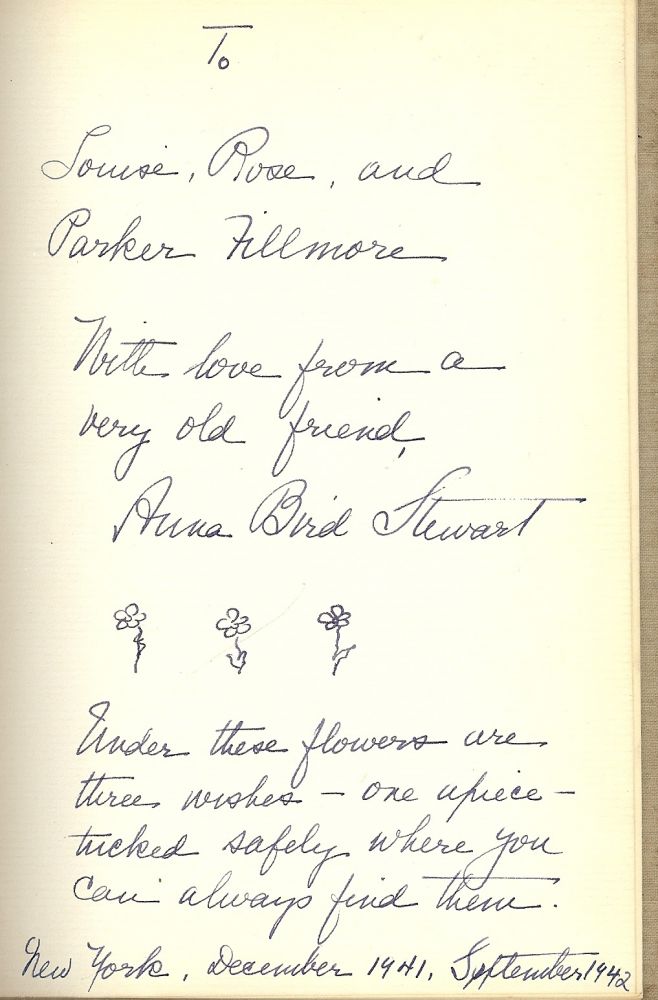 To
Louise, Rose, and
Parker Fillmore
With love from a
very old friend,
Anna Bird Stewart
Under these flowers are
three wishes – one apiece –
tucked safely where you
can always find them.
New York, December 1941, September 1942